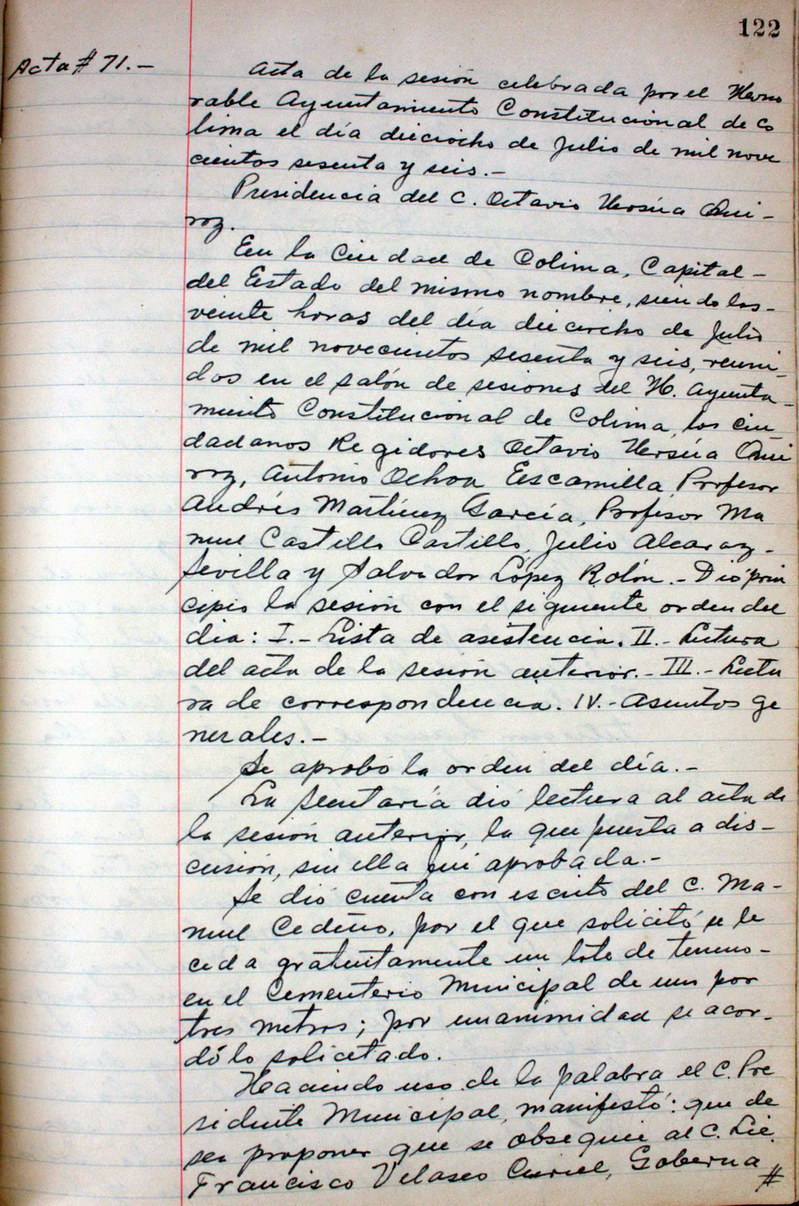 122
Acta # 71.-
Acta de la sesión celebrada por el Hono
rable Ayuntamiento Constitucional de Co
lima el día dieciocho de Julio de mil nove
cientos sesenta y seis.-
Presidencia del C. Octavio Ursúa Qui-
roz.
En la Ciudad de Colima, Capital-
del Estado del mismo nombre, siendo las-
veinte horas del día dieciocho de Julio
de mil novecientos sesenta y seis, reuni-
dos en el salón de sesiones del H. Ayunta-
miento Constitucional de Colima, los ciu
dadanos Regidores Octavio Ursúa Qui
roz, Antonio Ochoa Escamilla, Profesor
Andrés Martínez García, Profesor Ma
nuel Castillo Castillo, Julio Alcaraz-
Sevilla y Salvador López Rolón.- Dió prin
cipio la sesión con el siguiente orden del
dia: I.- Lista de asistencia. II.- Lectura
del acta de la sesión anterior.- III.- Lectu
ra de correspondencia. IV.- Asuntos ge
nerales.-
Se aprobó la orden del día.-
La Secretaría dió lectura al acta de
la sesión anterior, la que puesta a dis-
cusión, sin ella fui aprobada.-
Se dió cuenta con escrito del C. Ma-
nuel Cedeño, por el que solicitó se le
ceda gratuitamente un lote de terreno-
en el Cementerio Municipal de uno por
tres metros; por unanimidad se acor-
dó lo solicitado.
Haciendo uso de la palabra el C. Pre
sidente Municipal, manifestó: que de
sea proponer que se obsequie al C. Lic.
Francisco Velasco Curiel, Goberna #